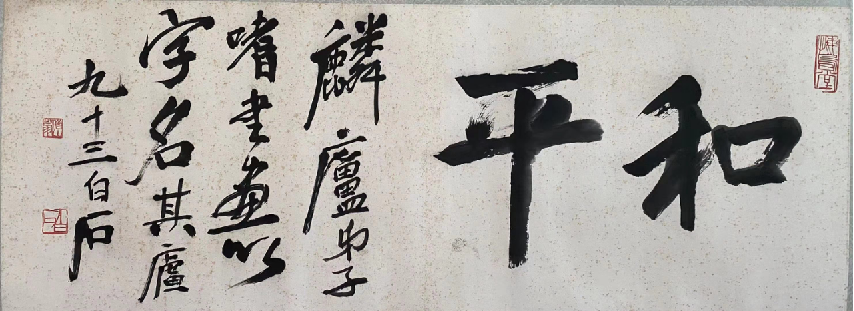 悔烏堂
和平
麟廬弟子
嗜書畫以
字名其廬
九十三白石